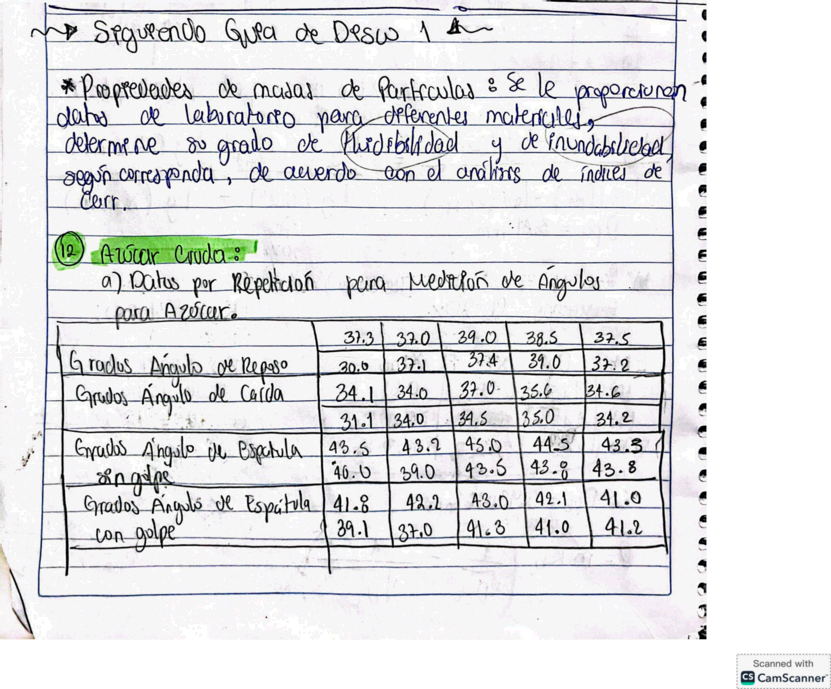 Siguiendo Guía de Descu 1
*Propiedades de masas de Partículas : Se le proporcionan
datos de laboratorio para diferentes materiales,
determine su grado de Fluidibilidad y de inundabilidad,
según corresponda, de acuerdo con el análisis de índices de
Carr.
12 Azúcar Cruda:
a) Datos por Repetición para Medición de Ángulos
para Azúcar.
37.3 37.0 39.0 38.5 37.5
Grados Ángulo de Reposo 30.0 37.1 37.4 39.0 37.2
Grados Ángulo de Caída 34.1 34.0 37.0 35.6 34.6
31.1 34.0 34.5 35.0 34.2
Grados Ángulo de Espátula 43.5 43.2 45.0 44.5 43.3
sin golpe 40.0 39.0 43.5 43.8 43.8
Grados Ángulo de Espátula 41.8 42.2 43.0 42.1 41.0
con golpe 39.1 37.0 41.3 41.0 41.2
Scanned with
CS CamScanner